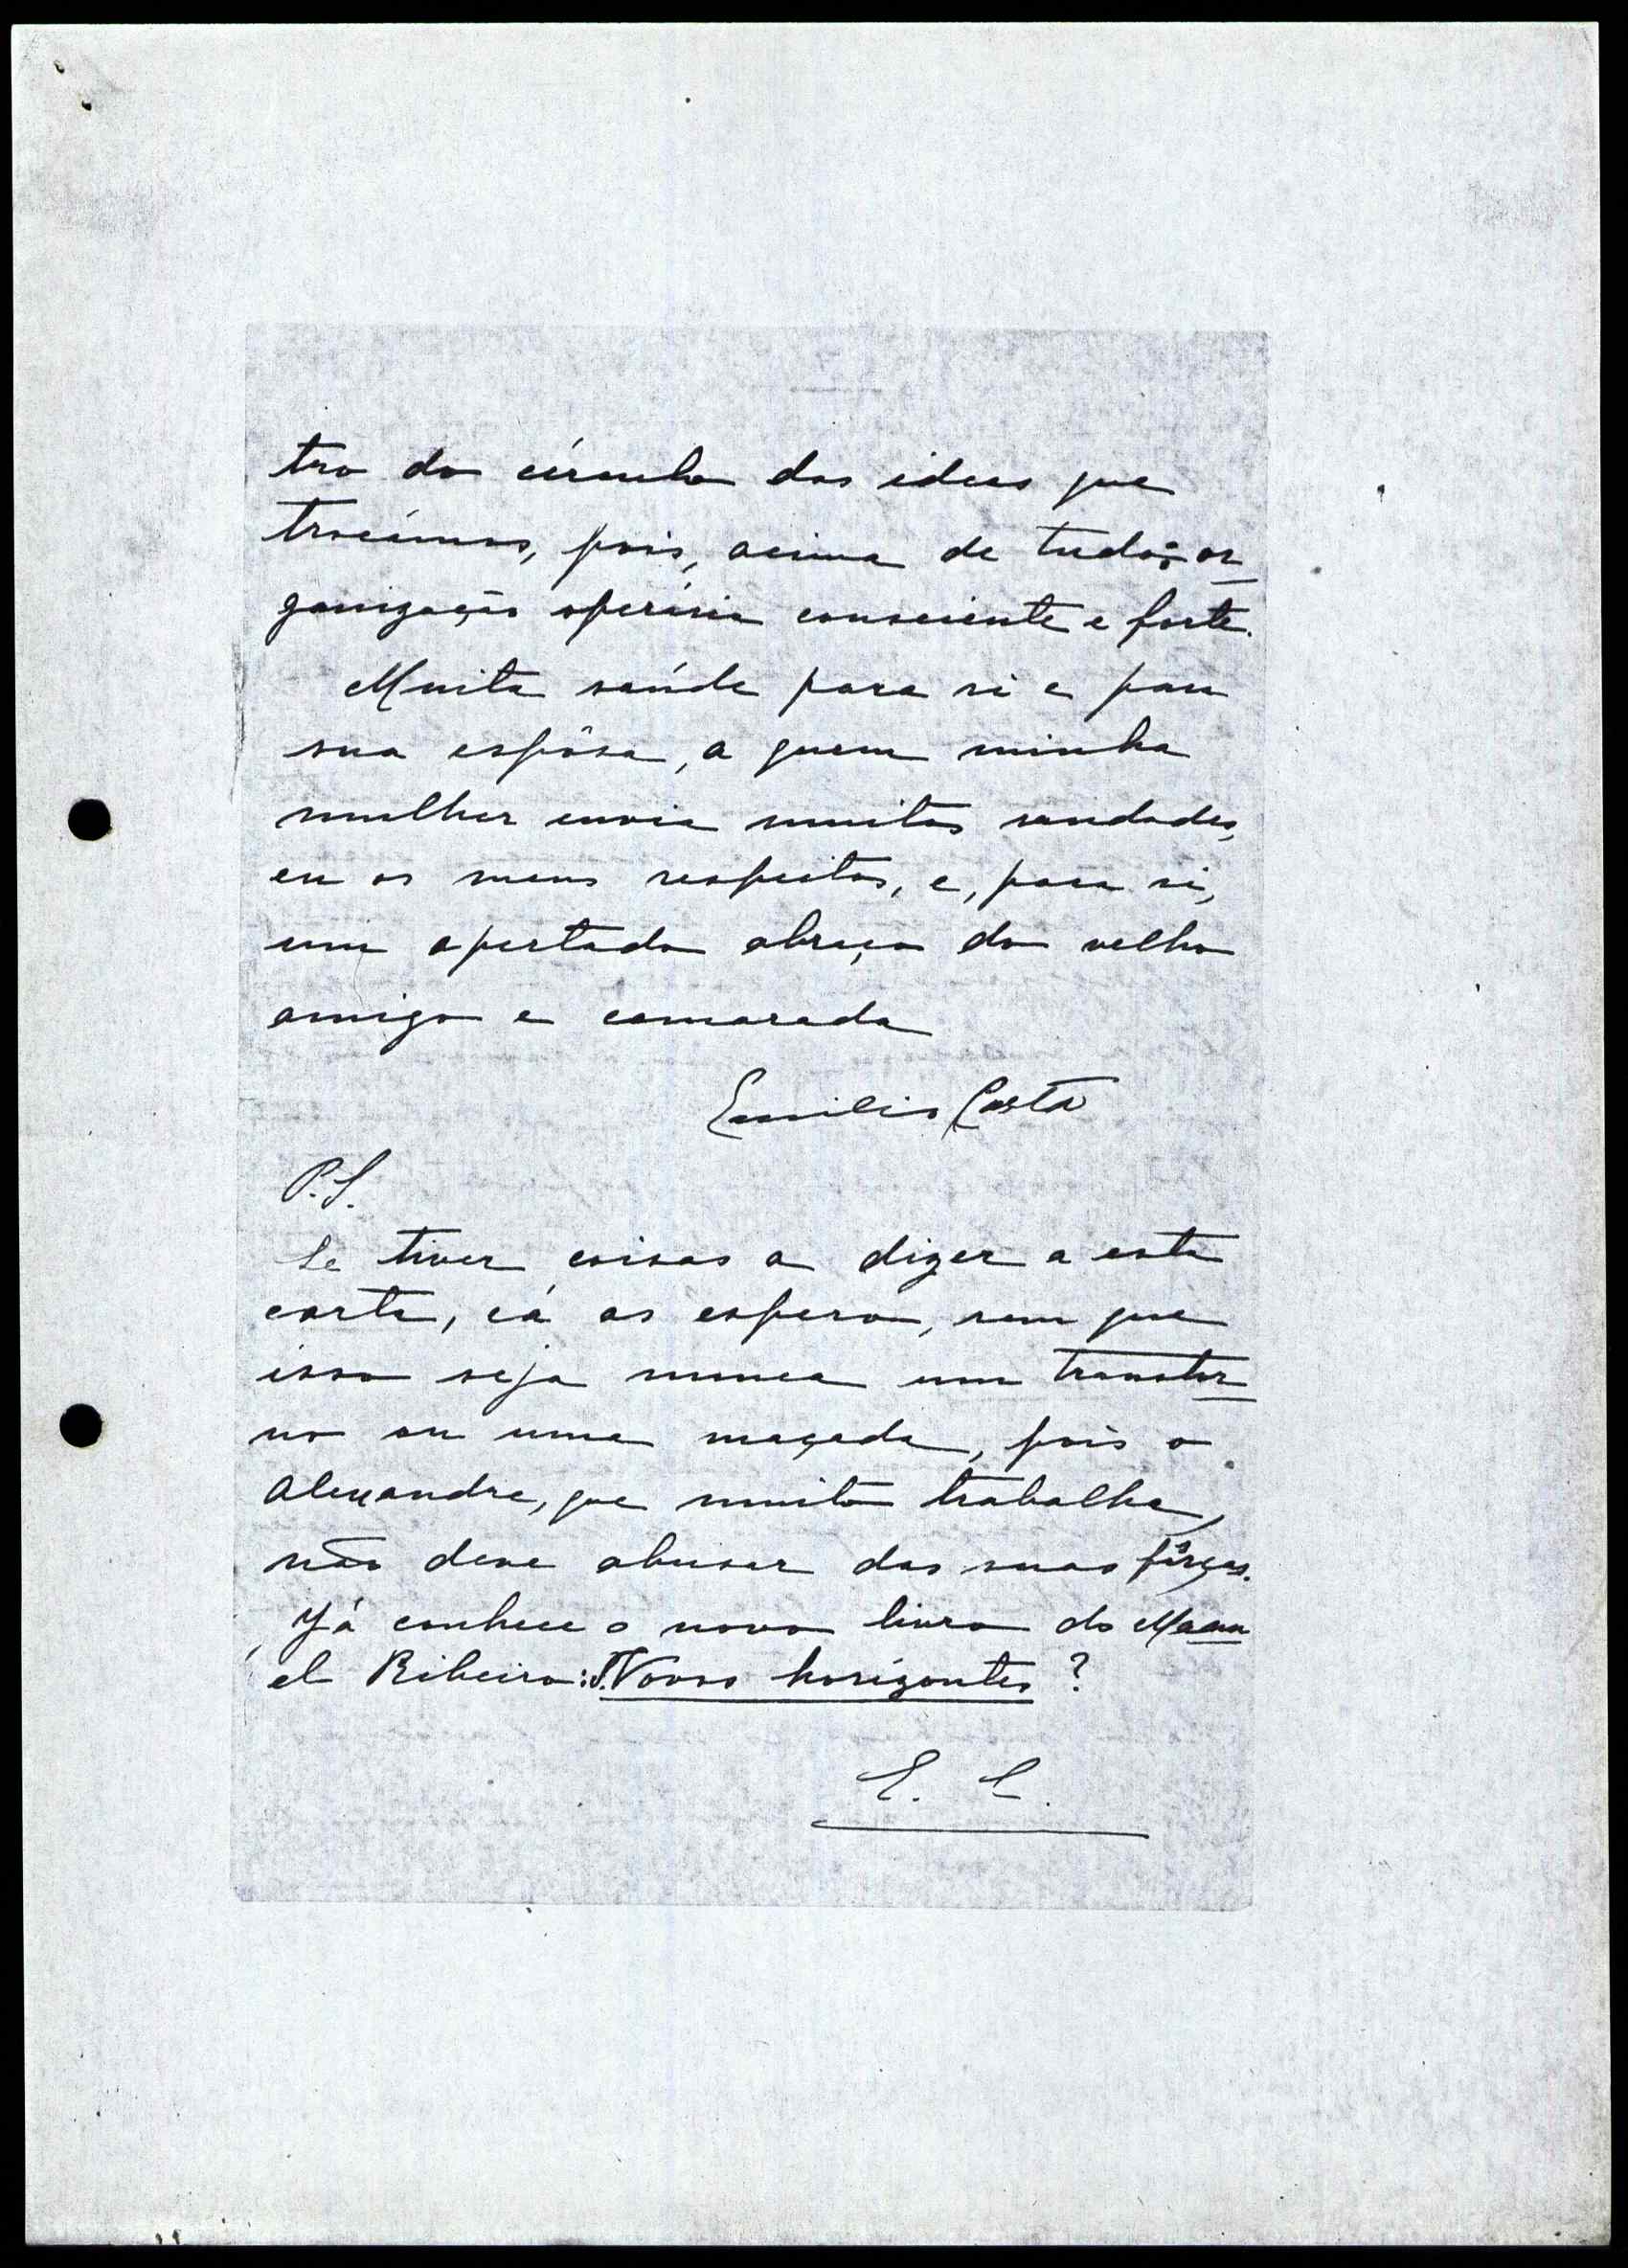 tro do círculo das ideas que
trocámos, pois, acima de tudo: or
ganização operária consciente e forte.
Muita saúde para si e para
sua espôsa, a quem minha
mulher envia muitas saudades,
eu os meus respeitos, e, para si,
um apertado abraço do velho
amigo e camarada
Emilio Costa
P.S.
Se tiver coisas a dizer a esta
carta, cá as espero, sem que
isso seja nunca um transtor
no ou uma maçada, pois o
Alexandre, que muito trabalha,
não deve abusar das suas fôrças.
Já conhece o novo livro do Manu
el Ribeiro: Novos horizontes?
E. C.